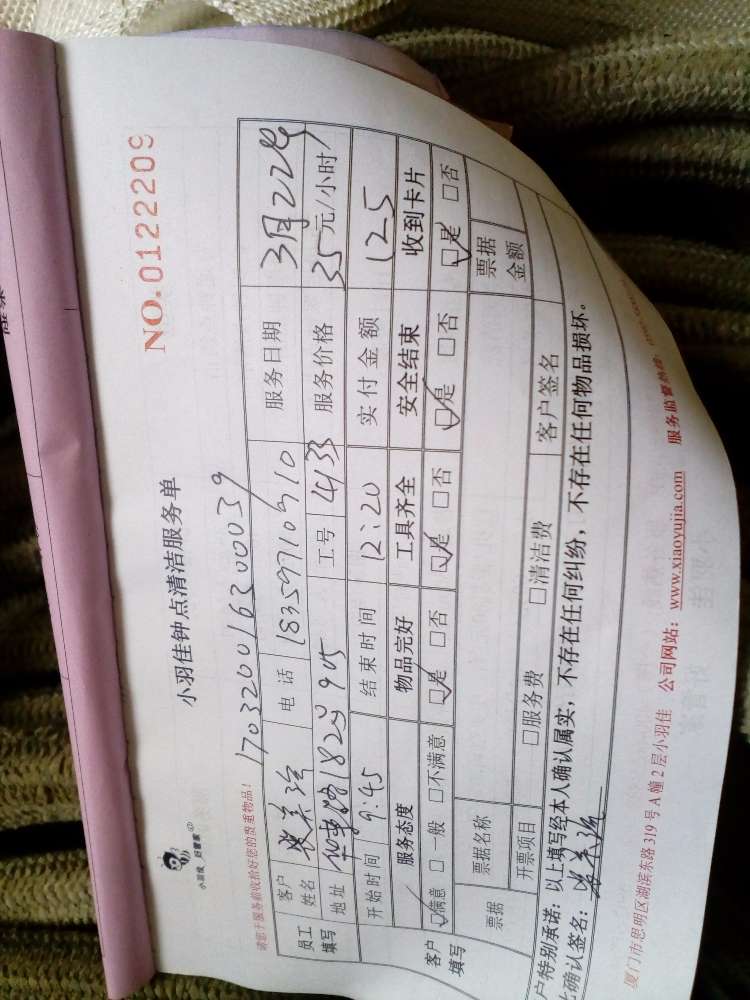 小羽佳 好管家
小羽佳钟点清洁服务单
NO.0122209
请您于服务前收拾好您的贵重物品!
170320016300039
员工填写 客户姓名 电话 18359710910 服务日期 3月22号
地址 工号 4133 服务价格 35元/小时
开始时间 9:45 结束时间 12:20 实付金额 125
客户填写 服务态度 物品完好 工具齐全 安全结束 收到卡片
☑满意 □一般 □不满意 ☑是 □否 ☑是 □否 ☑是 □否 ☑是 □否
票据 票据名称 票据金额
开票项目 □服务费 □清洁费 客户签名
户特别承诺:以上填写经本人确认属实,不存在任何纠纷,不存在任何物品损坏。
确认签名:
厦门市思明区湖滨东路319号A幢2层小羽佳 公司网站:www.xiaoyujia.com 服务监督热线: